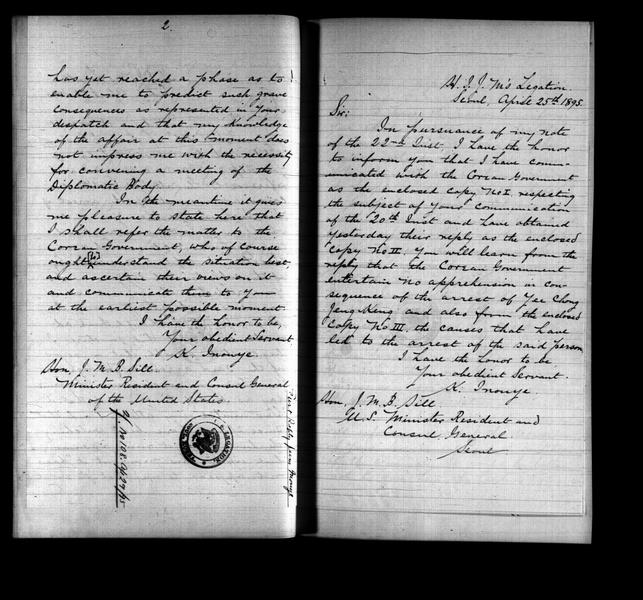 2.
has yet reached a phase as to
enable me to predict such grave
consequences as represented in your
despatch and that my knowledge
of the affair at this moment does
not impress me with the necessity
for convening a meeting of the
Diplomatic Body.
In the meantime it gives
me pleasure to state here that
I shall refer the matter to the
Corean Government, who of course
ought [to] understand the situation best,
and ascertain their views on it
and communicate them to you
at the earliest possible moment.
I have the honor to be,
Your obedient Servant
K. Inouye.
Hon. J. M. B. Sill.
Minister Resident and Consul General
of the United States
First Reply from Inouye
H. I. J. M's Legation.
Seoul, April 25th 1895.
Sir:
In pursuance of my note
of the 22nd Inst. I have the honor
to inform you that I have comm-
unicated with the Corean Government
as the enclosed copy No I. respecting
the subject of your communication
of the 20th Inst and have obtained
yesterday their reply as the enclosed
Copy No II. You will learn from the
reply that the Corean Government
entertain no apprehension in con-
sequence of the arrest of Yee Chong
Jeng Keng and also from the enclosed
Copy No III, the causes that have
led to the arrest of the said person
I have the honor to be
Your obedient Servant.
K. Inouye.
Hon. J. M. B. Sill
U. S. Minister Resident and
Consul General
Seoul